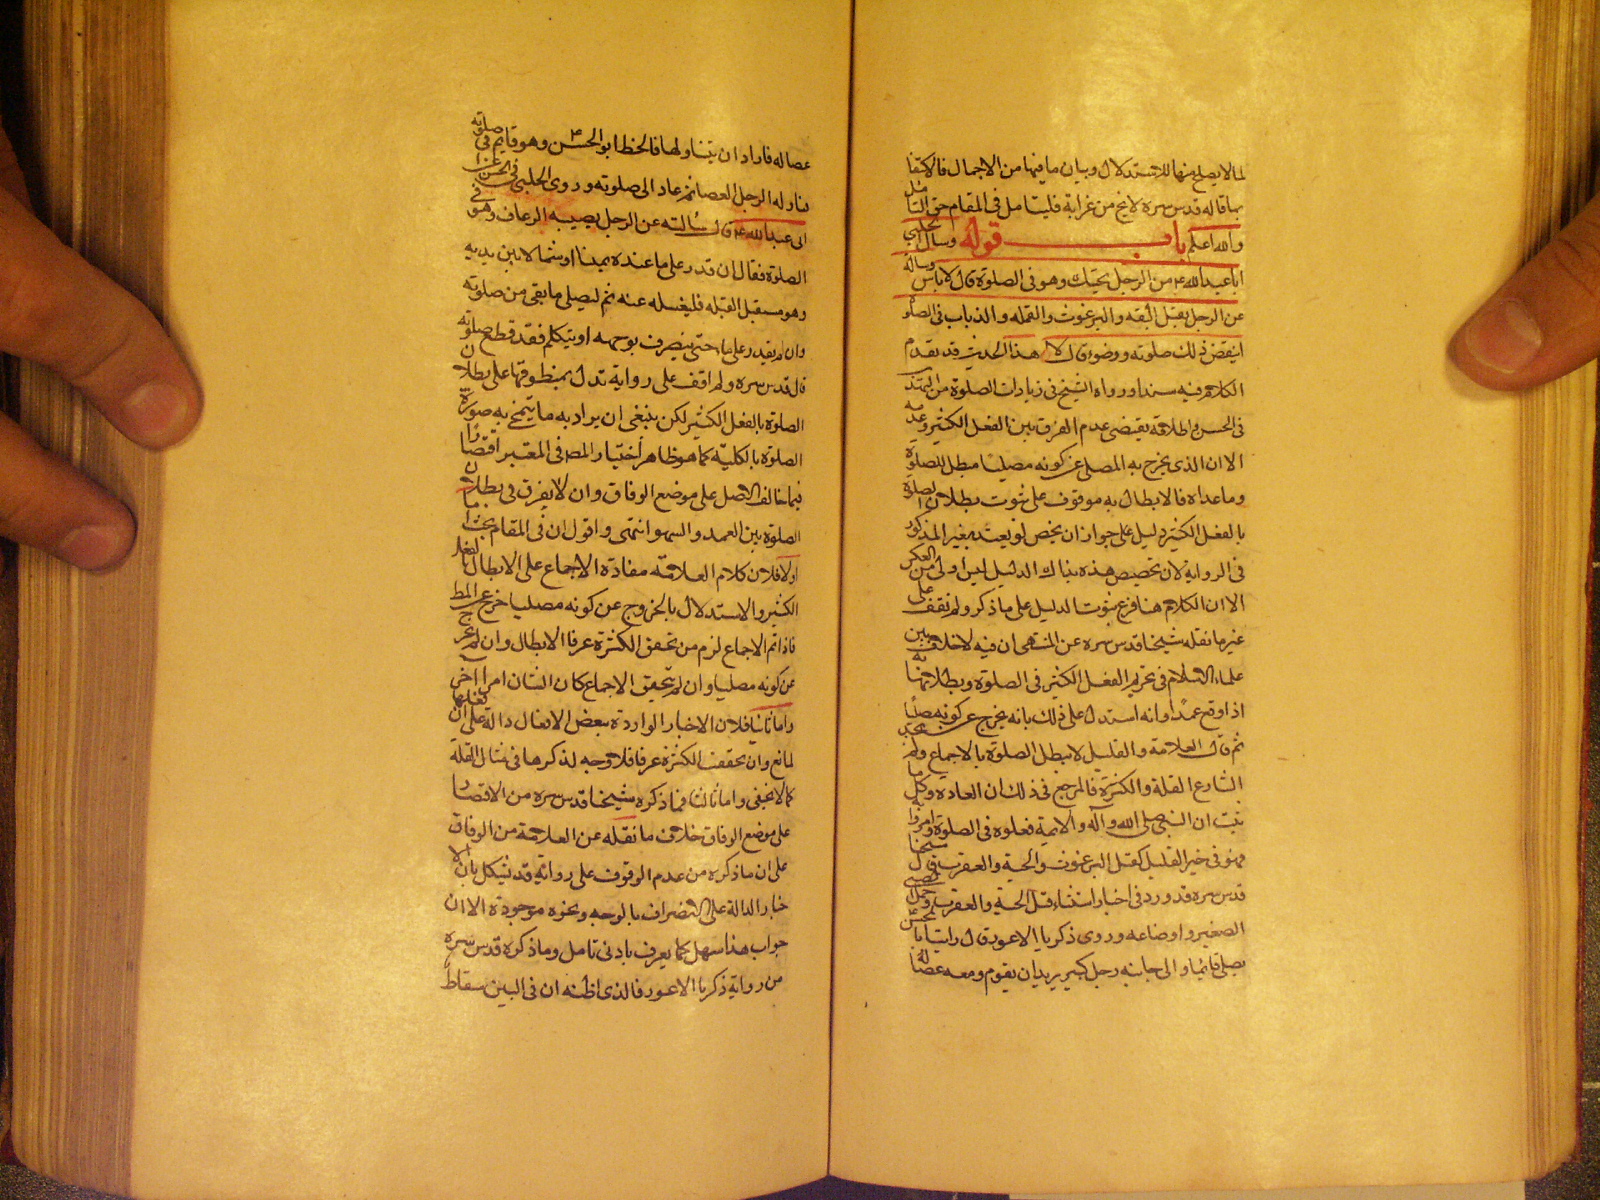 لما لا يصلح منها للاستدلال وبيان ما فيها من الاجمال فالاكتفا
بما قاله قدس سره لا يخ من غرابة فليتامل في المقام حق التامل
والله اعلم باب قوله وسال الحلبي
ابا عبد الله ع من الرجل يحتك وهو في الصلوة قال لا باس وساله
عن الرجل يقتل البقه والبرغوث والقمله والذباب في الصلو
اينقض ذلك صلوته ووضوءه قال لا هذا الحديث قد تقدم
الكلام فيه سندا ورواه الشيخ في زيادات الصلوة من التهذيب
في الحسن واطلاقه يقتضي عدم الفرق بين الفعل الكثير وعدمه
الا ان الذي يخرج به المصلي عن كونه مصليا مبطل للصلوة
وما عداه فالابطال به موقوف على ثبوت بطلان الصلوة
بالفعل الكثير دليل على جواز ان يخص لو يعتد بغير المذكور
في الرواية لان تخصيص هذه بذاك الدليل ليس اولى من العكس
الا ان الكلام هنا فرع ثبوت الدليل على ما ذكر ولم نقف على
غير ما نقله شيخنا قدس سره عن المنتهى ان فيه لا خلاف بين
علماء الاسلام في تحريم الفعل الكثير في الصلوة وبطلانها به
اذا وقع عمدا وانه استدل على ذلك بانه يخرج عن كونه مصليا
ثم قال العلامة والقليل لا يبطل الصلوة بالاجماع ولم يحد
الشارع القلة والكثرة فالمرجع في ذلك ان العادة وكل ما
ثبت ان النبي صلى الله وآله والائمة فعلوه في الصلوة وامروا به
فهو في خير القليل كقتل البرغوث والحية والعقرب قال شيخنا
قدس سره قد ورد في اخبار استثناء قتل الحية والعقرب وحمل الصبي
الصغير وارضاعه وروى ذكريا الاعور قال رايت ابا الحسن ع
يصلي قايما والى جانبه رجل كبير يريد ان يقوم ومعه عصا له
عصاله فاراد ان يتناولها فانحط ابو الحسن ع وهو قايم في صلوته
فناوله الرجل العصا ثم عاد الى صلوته وروى الحلبي في الحسن عن
ابى عبد الله ع قال سألته عن الرجل يصيبه الرعاف وهو في
الصلوة فقال ان قدر على ما عنده يمينا او شمالا بين يديه
وهو مستقبل القبله فليغسله عنه ثم ليصلي ما بقي من صلوته
وان لم يقدر على ما حتى ينصرف بوجهه او يتكلم فقد قطع صلوته
قال قدس سره ولم اقف على رواية تدل بمنطوقها على بطلان
الصلوة بالفعل الكثير لكن ينبغي ان يراد به ما تنمحي به صورة
الصلوة بالكلية كما هو ظاهر اختيار المصـ في المعتبر اقتصارا
فيما خالف الاصل على موضع الوفاق وان لا يفرق في بطلان
الصلوة بين العمد والسهو انتهى واقول ان في المقام بحثا
اولا فلان كلام العلامة مفاده الاجماع على الابطال بالفعل
الكثير والاستدلال بالخروج عن كونه مصليا خرج عن المط
فاذا تم الاجماع لزم من تحقق الكثرة عرفا الابطال وان لم يخرج
عن كونه مصليا وان لم يتحقق الاجماع كان الشان امرا اخر
واما ثانيا فلان الاخبار الواردة ببعض الافعال دالة على ان فعلها
لمانع وان تحققت الكثرة عرفا فلا وجه لذكرها في مثال القلة
كما لا يخفى واما ثالثا فما ذكره شيخنا قدس سره من الاقتصار
على موضع الوفاق خلاف ما نقله عن العلامة من الوفاق
على ان ما ذكره من عدم الوقوف على رواية قد يشكل بان الا
خبار الدالة على الانصراف بالوجه ونحوه موجودة الا ان
جواب هذا سهل كما يعرف بادنى تامل وما ذكره قدس سره
من رواية ذكريا الاعور فالذي اظنه ان في البين سقاطا